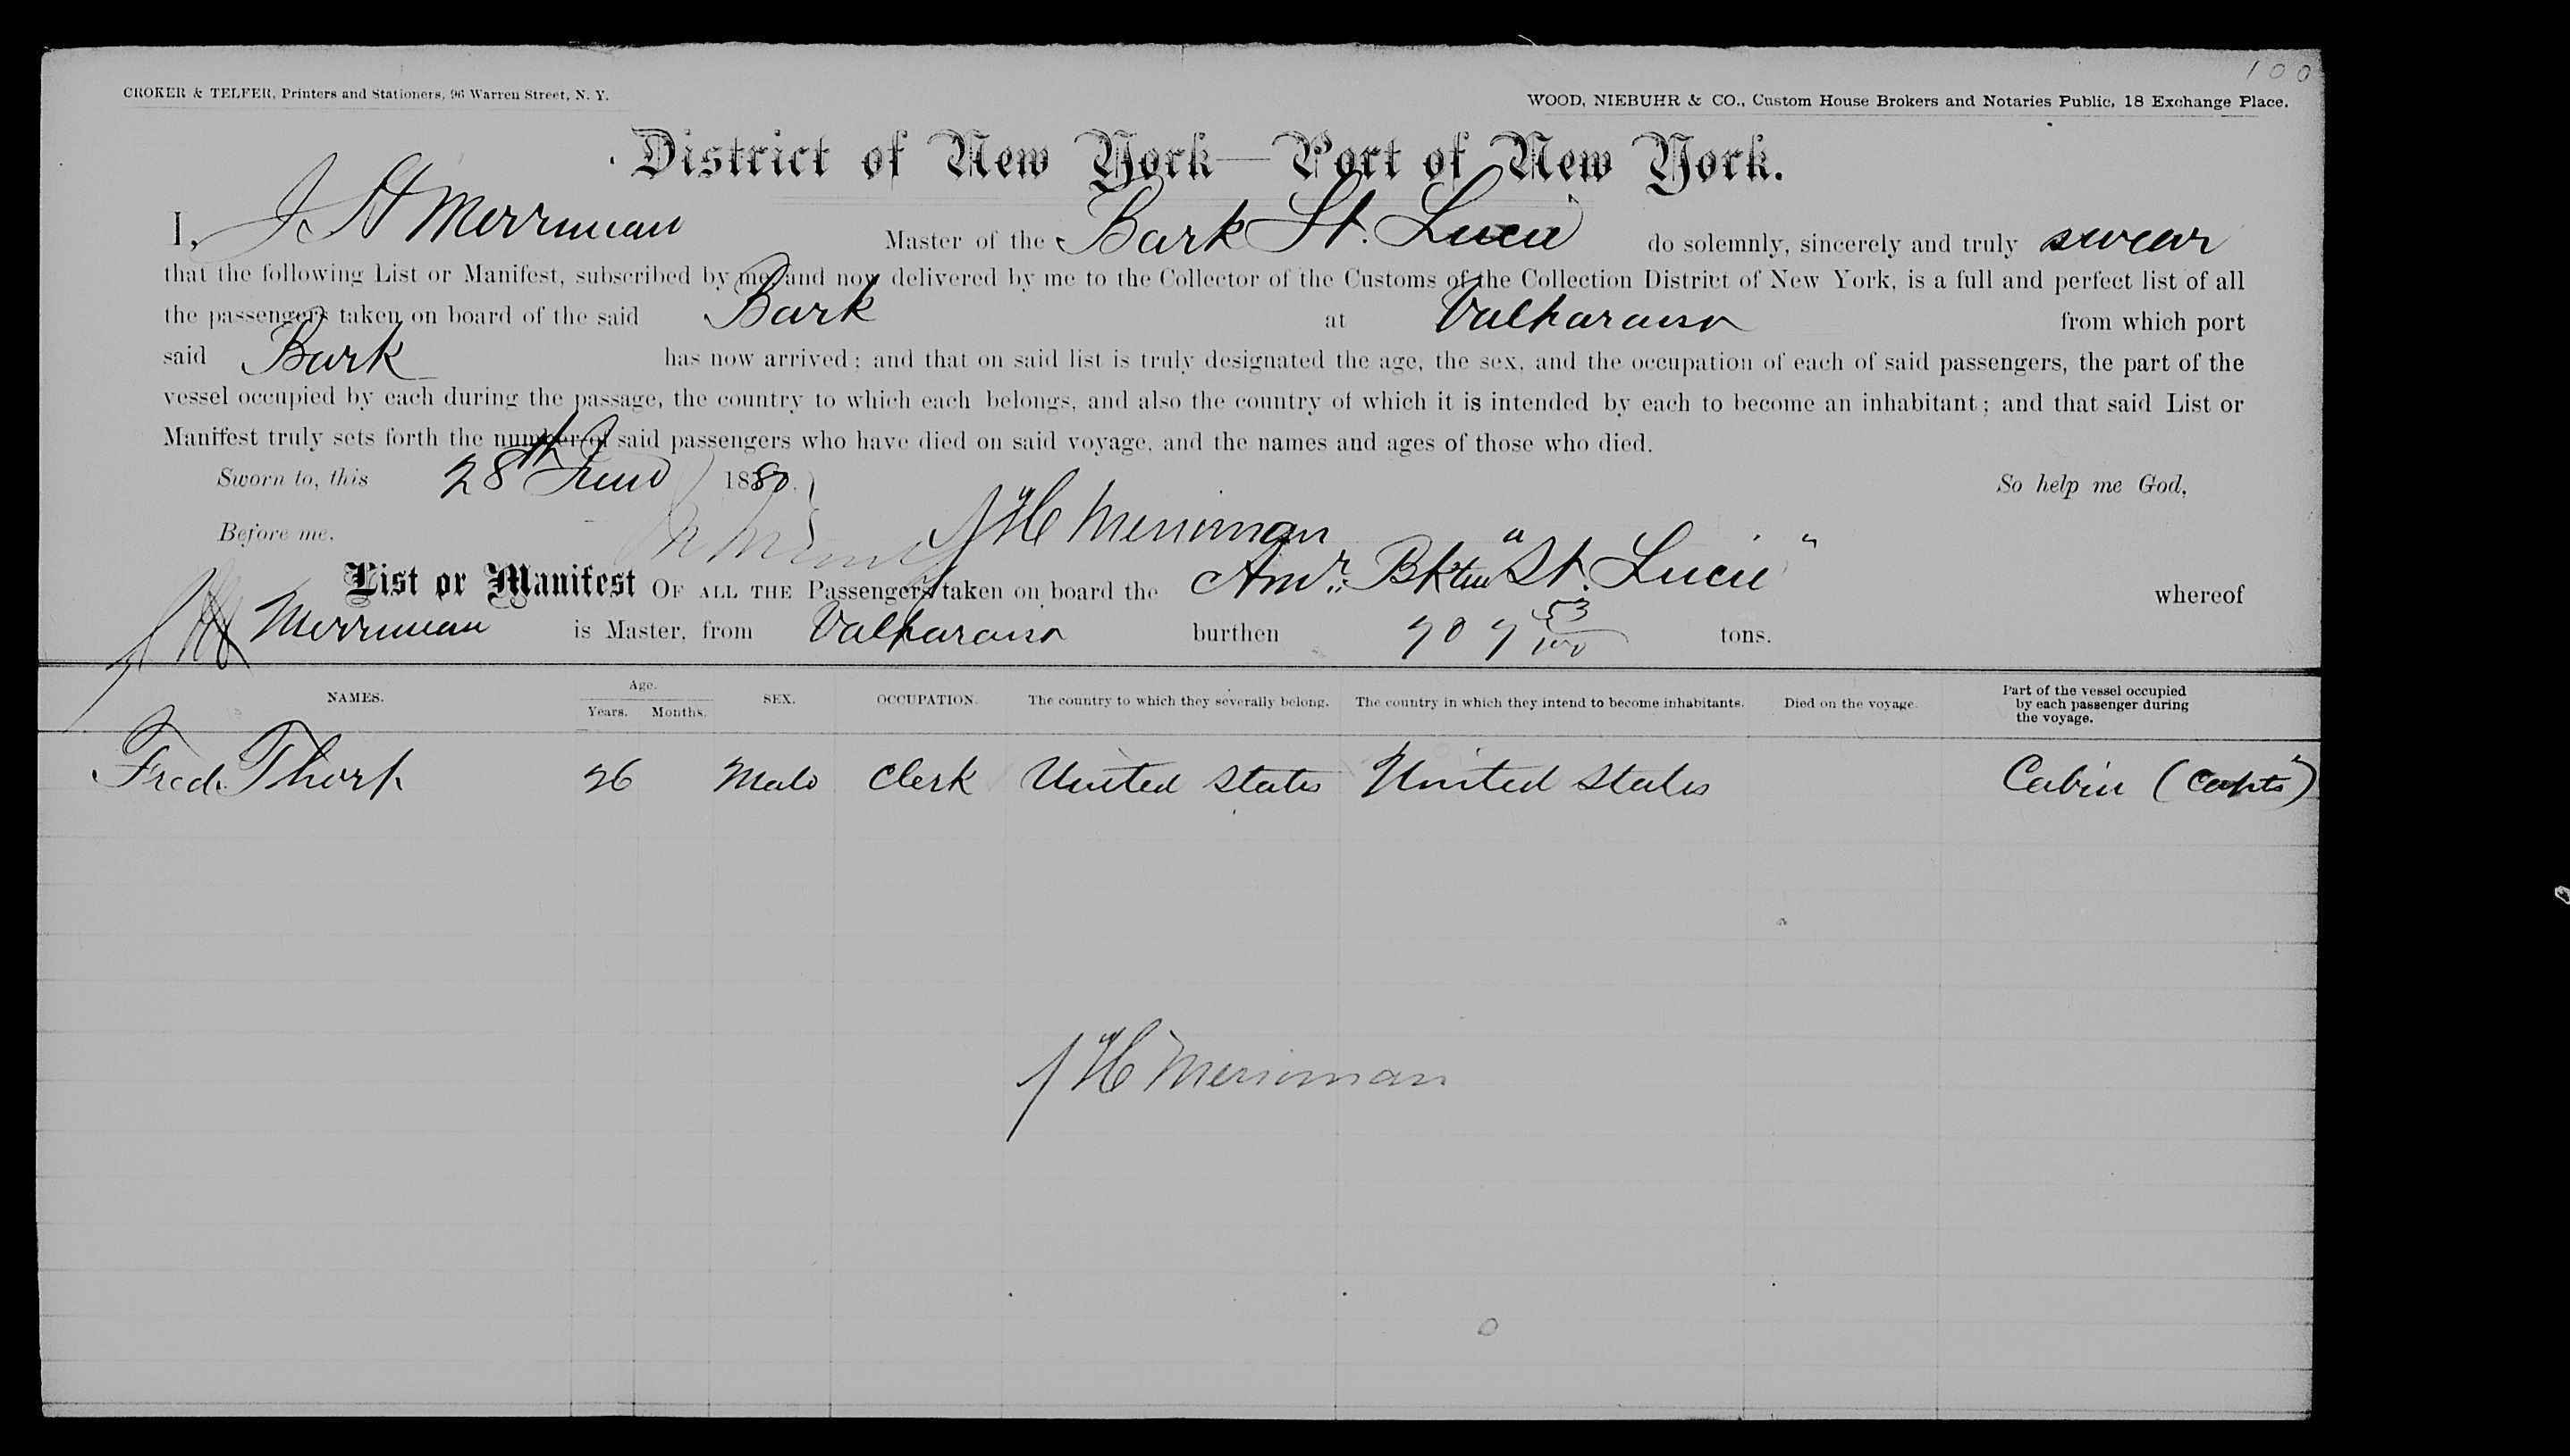 100
CROKER & TELFER, Printers and Stationers, 96 Warren Street, N. Y.
WOOD, NIEBUHR & CO., Custom House Brokers and Notaries Public, 18 Exchange Place.
District of New York—Port of New York.
I, J. H Merriman Master of the Bark St. Lucie do solemnly, sincerely and truly swear
that the following List or Manifest, subscribed by me, and now delivered by me to the Collector of the Customs of the Collection District of New York, is a full and perfect list of all
the passengers taken on board of the said Bark at Valparaiso from which port
said Bark has now arrived; and that on said list is truly designated the age, the sex, and the occupation of each of said passengers, the part of the
vessel occupied by each during the passage, the country to which each belongs, and also the country of which it is intended by each to become an inhabitant; and that said List or
Manifest truly sets forth the number of said passengers who have died on said voyage, and the names and ages of those who died.
Sworn to, this 28th June 1880. So help me God,
Before me, J H Merriman
List or Manifest OF ALL THE Passengers taken on board the Amr. Bktn "St. Lucie" whereof
J H Merriman is Master, from Valparaiso burthen 707 53/100 tons.
NAMES. Age. Years. Months. SEX. OCCUPATION. The country to which they severally belong. The country in which they intend to become inhabitants. Died on the voyage. Part of the vessel occupied by each passenger during the voyage.
Fred. Thorp 26 Male Clerk United States United States Cabin (Capts")
J H Merriman